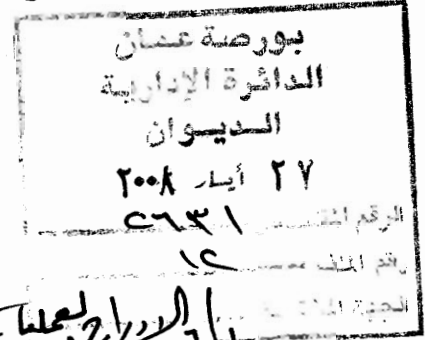 بورصة عمان
الدائرة الإدارية
الديوان
٢٧ أيار ٢٠٠٨
الرقم المتسلسل ٢٦٣١
رقم الملف ١٢
الجهة المختصة الإدراج